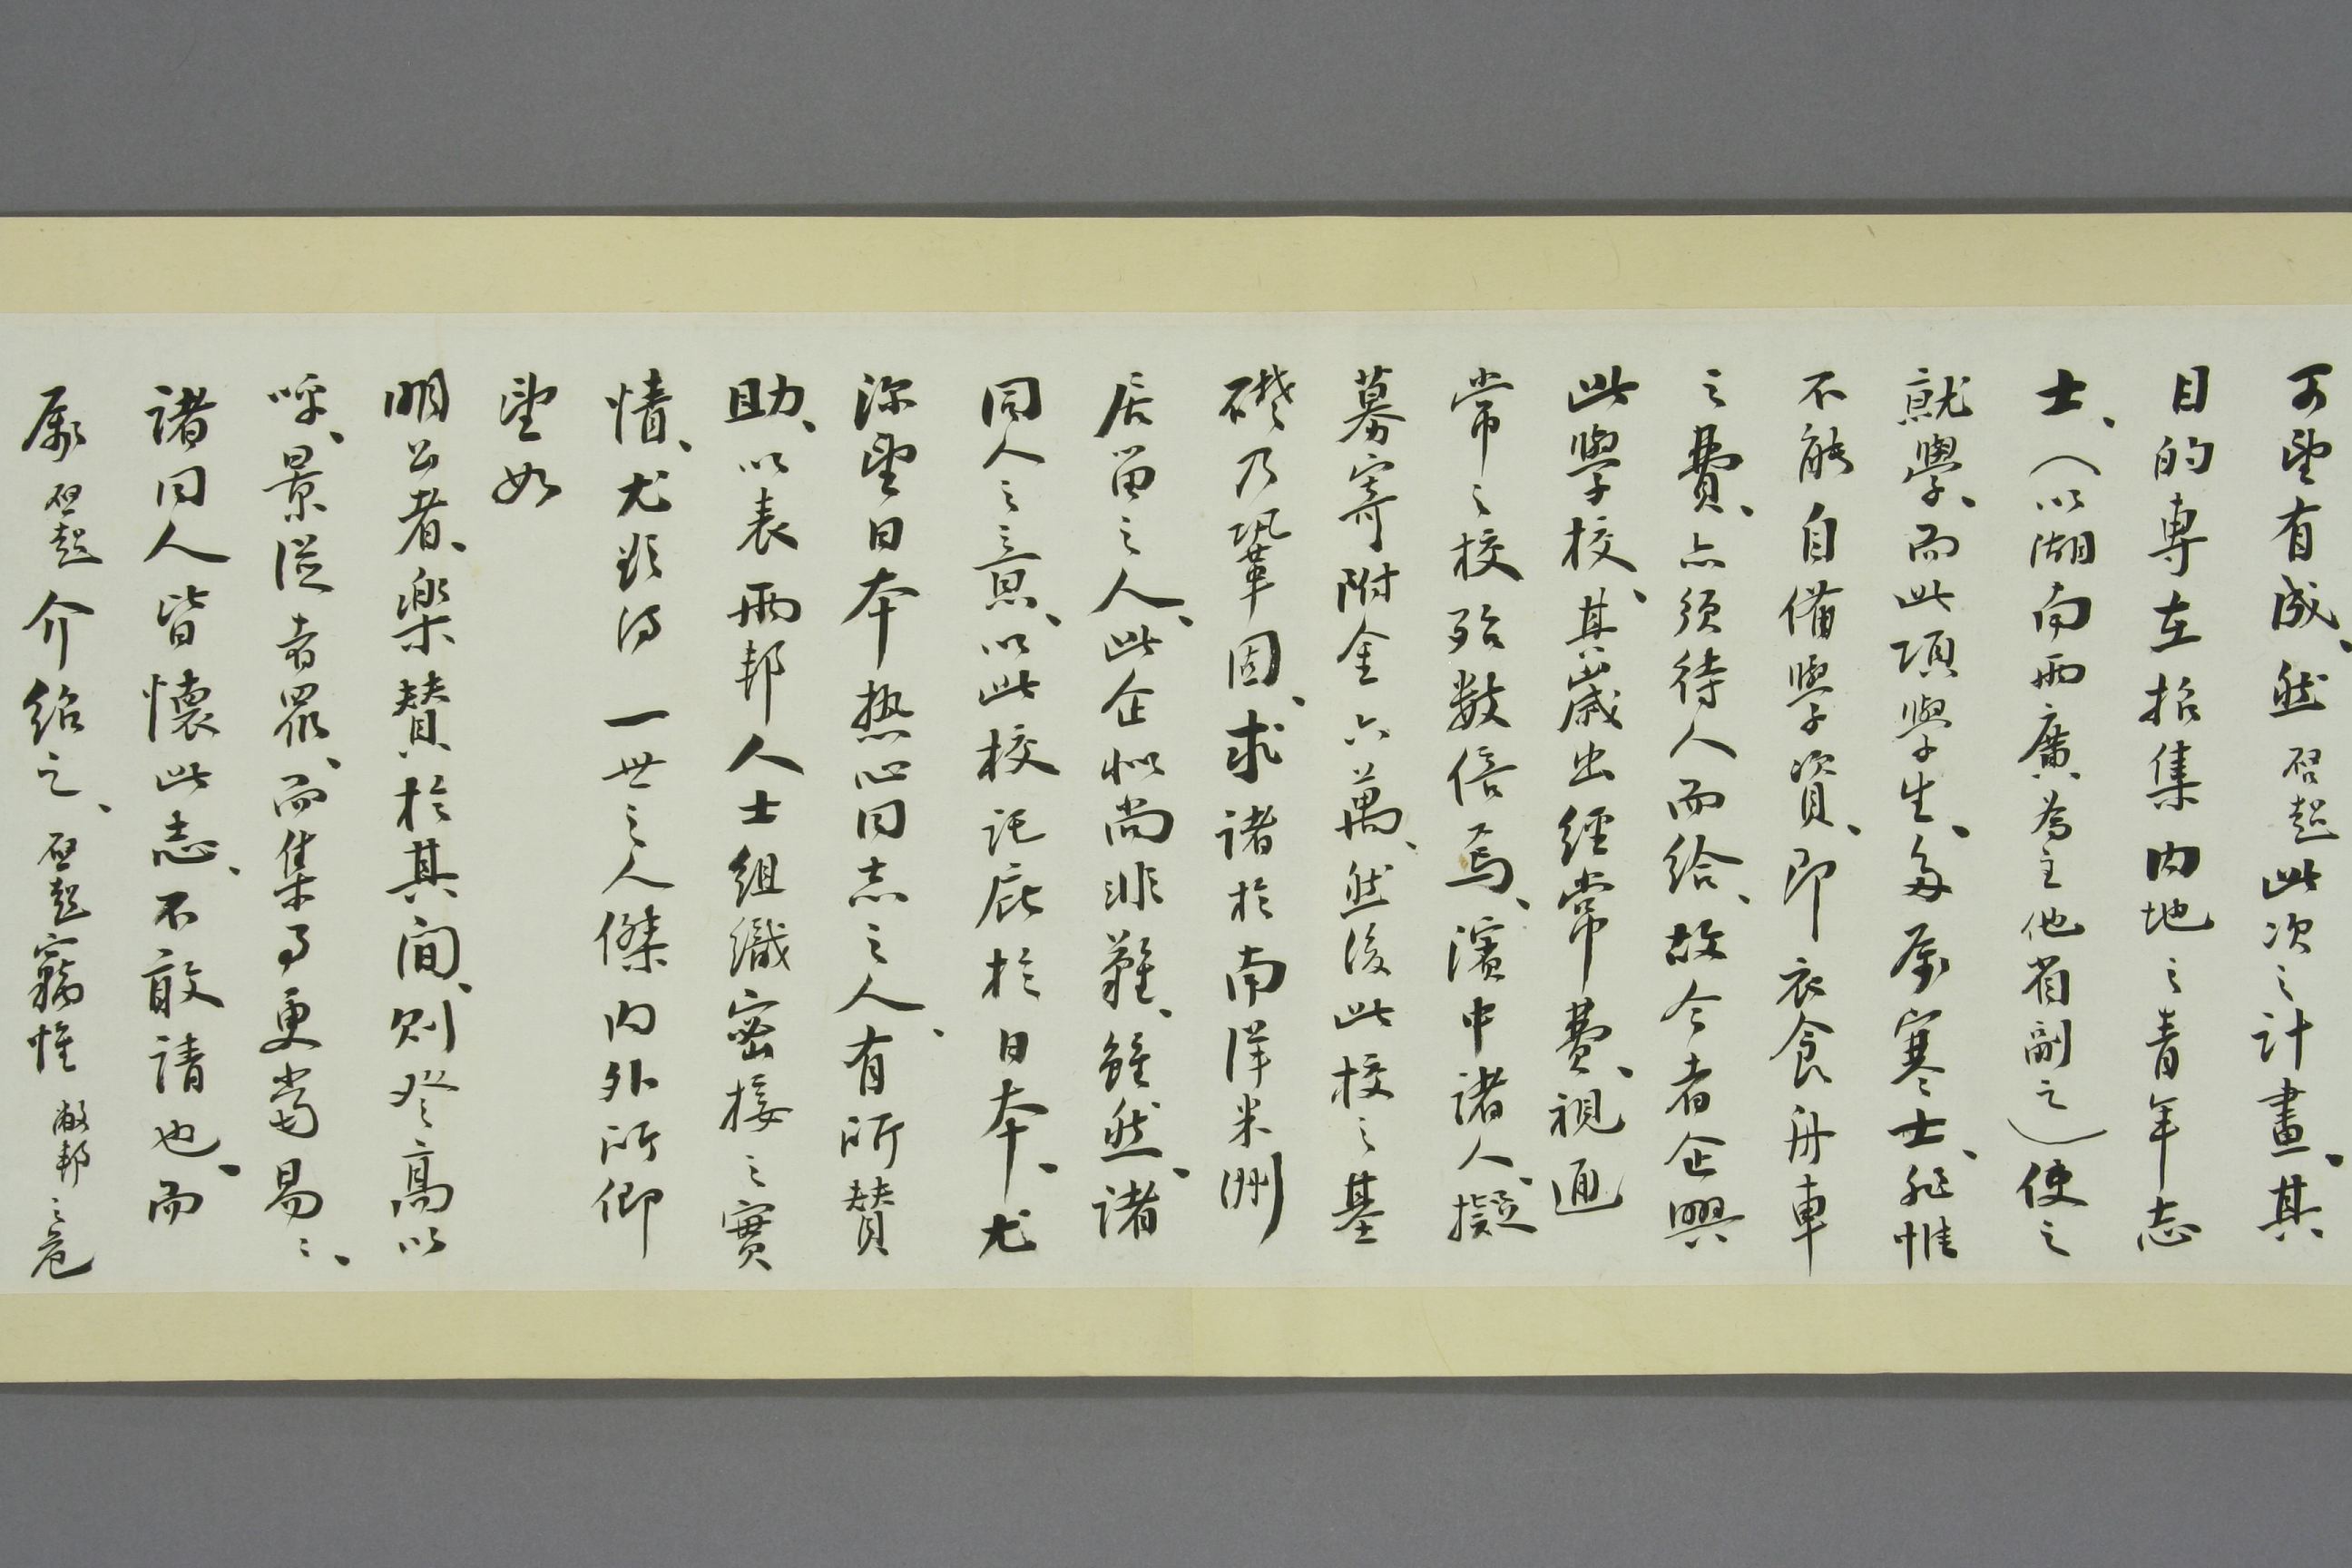 可望有成、然啓超此次之計畫、其
目的專在招集内地之青年志
士、（以湖南兩廣為主他省副之）使之
就學、而此項學生、多屬寒士、非惟
不能自備學資、即衣食舟車
之費、亦須待人而給、故今者企興
此學校、其歲出經常費、視通
常之校殆数倍焉、濱中諸人、擬
募寄附金六萬、然後此校之基
礎乃鞏固、求諸於南洋米洲
居留之人、此企似尚非難、雖然、諸
同人之意、以此校託庇於日本、尤
深望日本热心同志之人、有所賛
助、以表兩邦人士組織密接之實
情、尤欲得一世之人傑内外所仰
望如
明公者、樂賛於其間、則登高以
呼、景從者眾、而集事更當易之、
諸同人皆懷此志、不敢請也、而
屬啓超介紹之、啓超竊惟敝邦之危